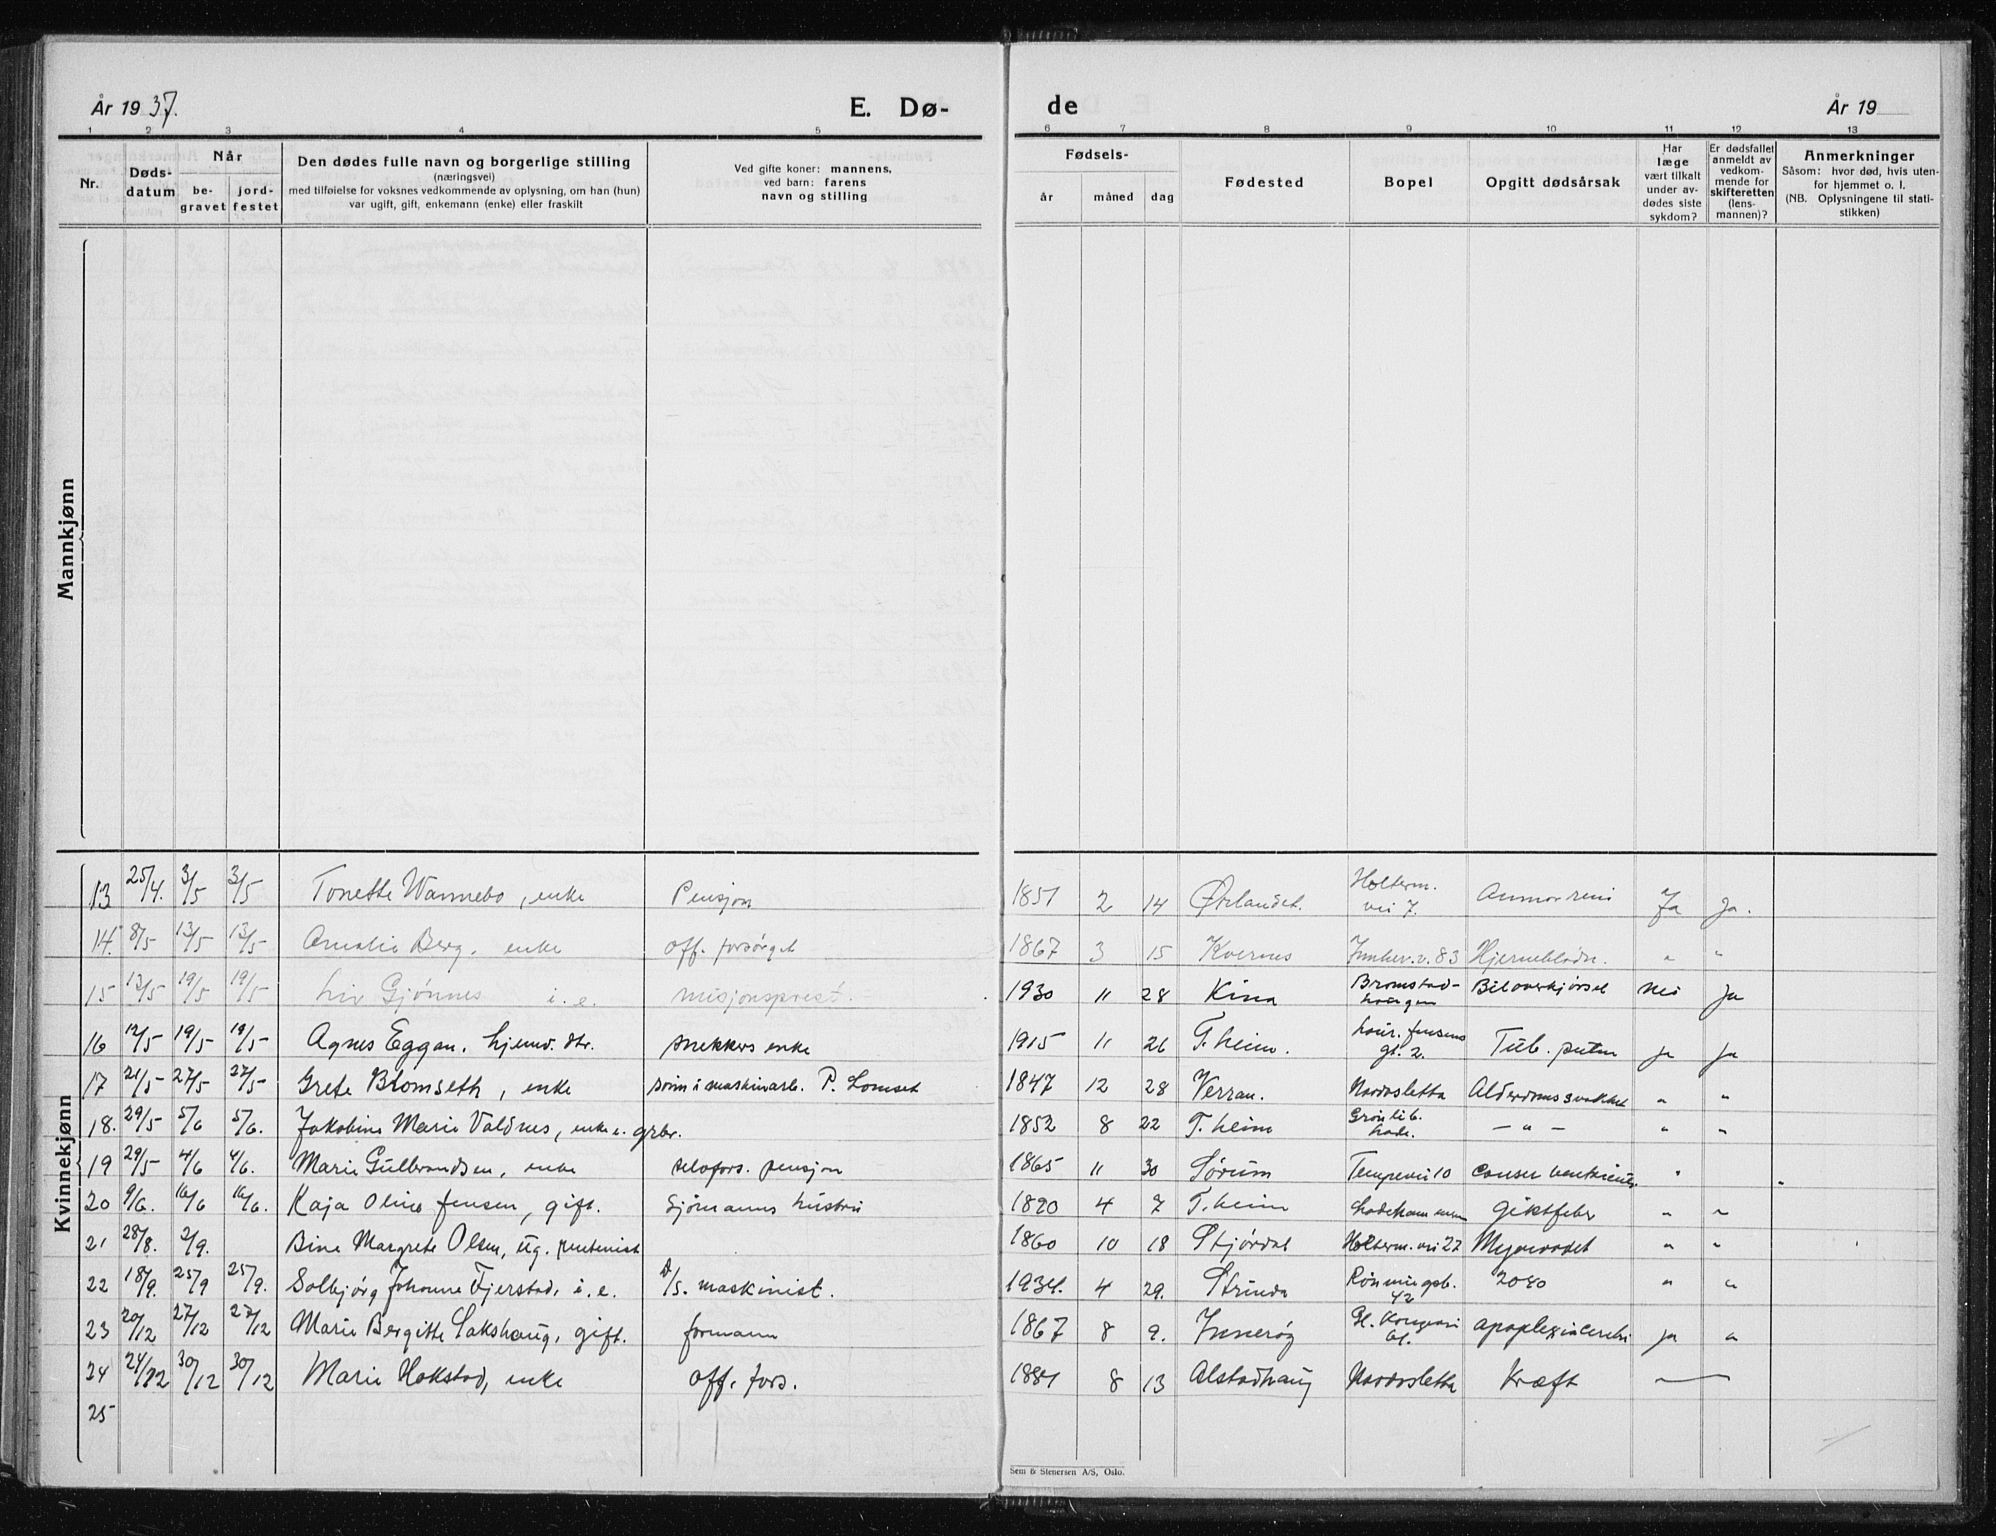 År 1937.
E. Dø-
de
År 19
1 2 3 4 5 6 7 8 9 10 11 12 13
Nr.
Døds-
datum
Når
be-
gravet
jord-
festet
Den dødes fulle navn og borgerlige stilling
(næringsvei)
med tilføielse for voksnes vedkommende av oplysning, om han (hun)
var ugift, gift, enkemann (enke) eller fraskilt
Ved gifte koner: mannens,
ved barn: farens
navn og stilling
Fødsels-
år måned dag
Fødested
Bopel
Opgitt dødsårsak
Har
læge
vært tilkalt
under av-
dødes siste
sykdom?
Er dødsfallet
anmeldt av
vedkom-
mende for
skifteretten
(lens-
mannen)?
Anmerkninger
Såsom: hvor død, hvis uten-
for hjemmet o. l.
(NB. Oplysningene til stati-
stikken)
Mannkjønn
Kvinnekjønn
13 25/4. 3/5 3/5 Tonette Wannebo, enke Pensjon 1851 2 14 Ørlandet. Holterm. vei 7. Ja Ja.
14. 8/5 13/5 13/5 Amalie Berg, enke off. forsørget 1867 3 15 Kvernes Innher.v. 83 Hjerneblødn. " "
15 13/5 19/5 19/5 Liv Gjønnes i.e. misjonsprest. 1930 11 28 Kina Bromstad- Biloverkjørsel Nei Ja
16 12/5 19/5 19/5 Agnes Eggan, hjemv. dtr. snekkers enke 1915 11 26 T.heim. Laur. Jensens gt. 2. Tub. Ja Ja
17 21/5 27/5 27/5 Grete Blomseth, enke P. Lomset 1847 12 28 Verran. Nardosletta Alderdomssvakhet " "
18. 29/5 5/6 5/6. Jakobine Marie Valdnes, enke e. grbr. 1852 8 22 T.heim Lade. — " — " "
19 29/5 4/6 4/6. Marie Gulbrandsen, enke selvfors. pensjon 1865 11 30 Sørum Tempevei 10 "
20 9/6. 16/6 16/6. Kaja Oline Jensen, gift. Sjømanns hustru 1890 4 7 T.heim Giktfeber " "
21 28/8. 2/9. Bine Margrete Olsen, ug. 1860 10 18 Stjørdal Holterm. vei 27 " "
22 18/9. 25/9 25/9. Solbjørg Johanne Fjerstad, i.e. D/S. maskinist. 1934. 4 29. Strinda Rønningsb. 42 2080 " "
23 20/12 27/12 27/12 Marie Bergitte Sakshaug, gift. formann 1867 8 9. Inderøy Gl. Kongevei apoplexia cerebri ja "
24 24/12 30/12 30/12 Marie Hokstad, enke off. fors. 1881 8 13 Alstadhaug Nardosletta Kræft
25
Sem & Stenersen A/S, Oslo.